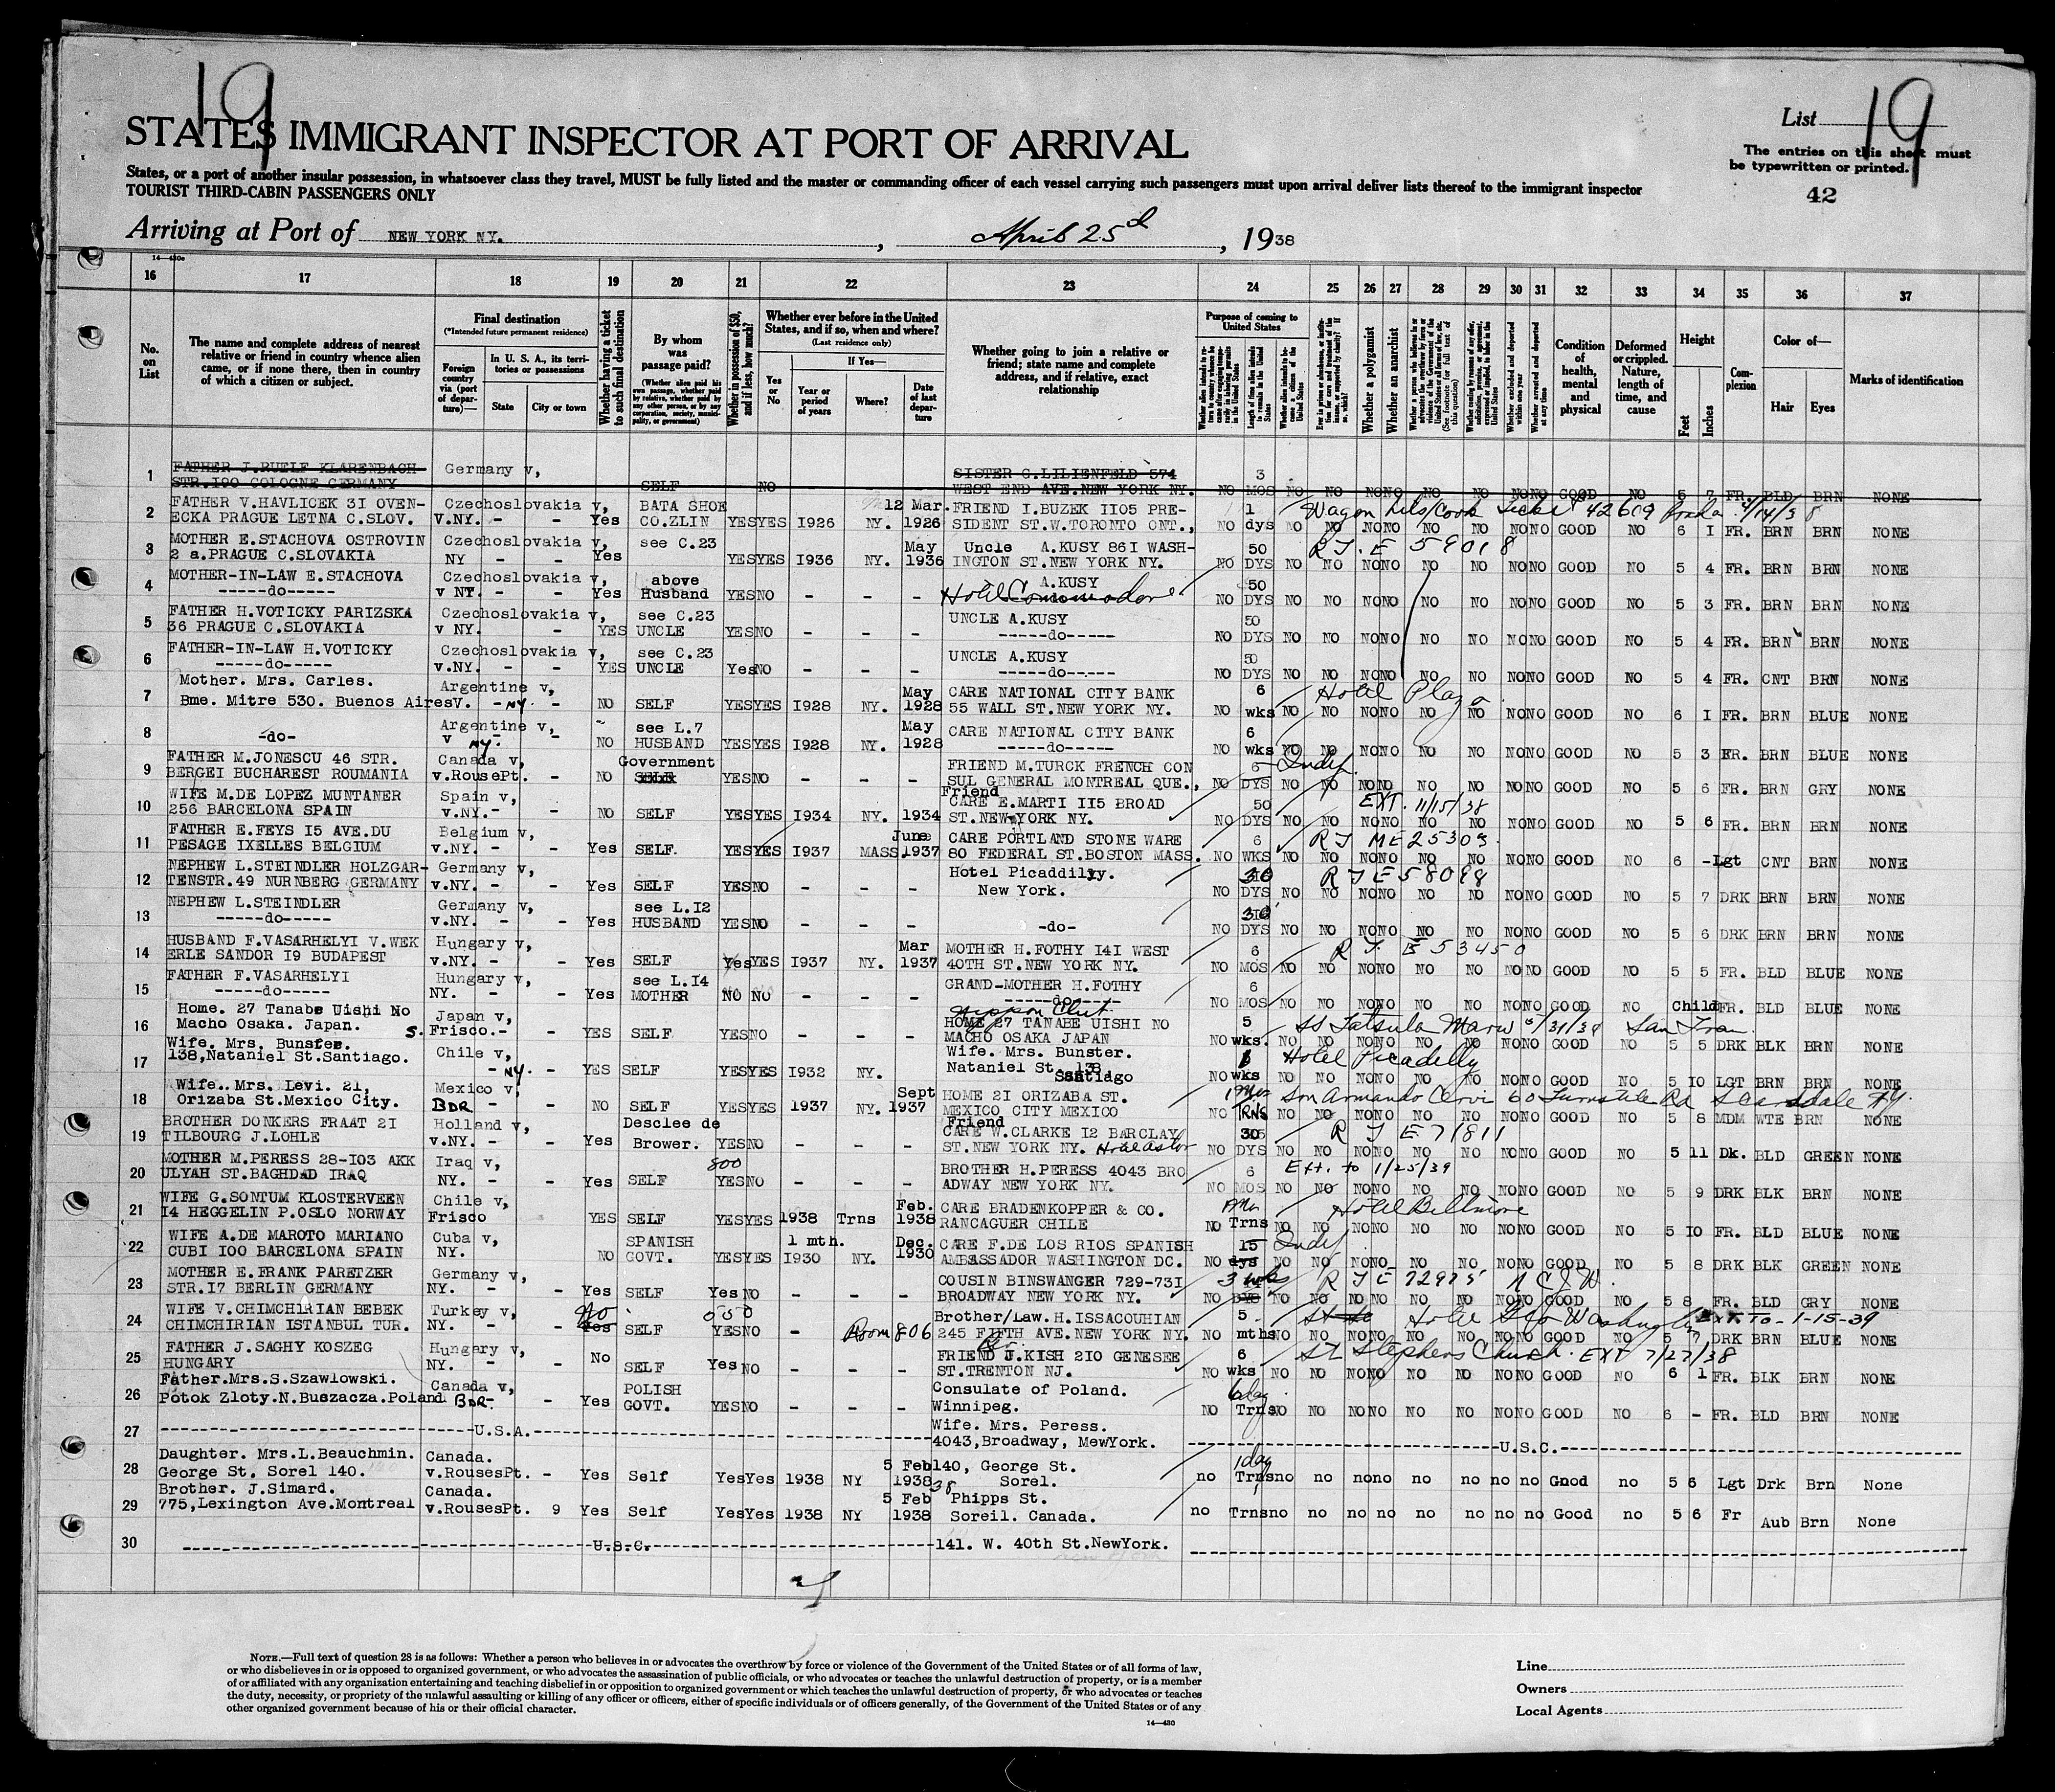 19
List 19
STATES IMMIGRANT INSPECTOR AT PORT OF ARRIVAL
The entries on this sheet must
be typewritten or printed.
States, or a port of another insular possession, in whatsoever class they travel, MUST be fully listed and the master or commanding officer of each vessel carrying such passengers must upon arrival deliver lists thereof to the immigrant inspector
TOURIST THIRD-CABIN PASSENGERS ONLY
42
Arriving at Port of NEW YORK NY. , April 25d , 1938
14—430c
16 17 18 19 20 21 22 23 24 25 26 27 28 29 30 31 32 33 34 35 36 37
No. on List
The name and complete address of nearest relative or friend in country whence alien came, or if none there, then in country of which a citizen or subject.
Final destination
(*Intended future permanent residence)
Foreign country via (port of departure)—
In U. S. A., its territories or possessions
State
City or town
Whether having a ticket to such final destination
By whom was passage paid?
(Whether alien paid his own passage, whether paid by relative, whether paid by any other person, or by any corporation, society, municipality, or government)
Whether in possession of $50, and if less, how much?
Whether ever before in the United States, and if so, when and where?
(Last residence only)
If Yes—
Yes or No
Year or period of years
Where?
Date of last departure
Whether going to join a relative or friend; state name and complete address, and if relative, exact relationship
Purpose of coming to United States
Length of time alien intends to remain in the United States
Whether alien intends to become a citizen of the United States
Whether a polygamist
Whether an anarchist
Whether excluded and deported within one year
Whether arrested and deported at any time
Condition of health, mental and physical
Deformed or crippled. Nature, length of time, and cause
Height
Feet
Inches
Complexion
Color of—
Hair
Eyes
Marks of identification
1 FATHER J.RUELF KLARENBACH- Germany v, SISTER G.LILIENFELD 574 3
STR.I00 COLOGNE GERMANY SELF NO - - - WEST END AVE.NEW YORK NY. NO MOS NO NO NONO NO NO NONO GOOD NO 5 7 FR. BLD BRN NONE
2 FATHER V.HAVLICEK 3I OVEN- Czechoslovakia v, BATA SHOE 12 Mar. FRIEND I.BUZEK II05 PRE- 1 Wagon Lits/Cook Ticket 42609 4/14/38
ECKA PRAGUE LETNA C.SLOV. V.NY. - - Yes CO.ZLIN YESYES I926 NY. 1926 SIDENT ST.W.TORONTO ONT., NO dys NO NO NONO NO NO NONO GOOD NO 6 I FR. BRN BRN NONE
3 MOTHER E.STACHOVA OSTROVIN Czechoslovakia v, see C.23 May Uncle A.KUSY 86I WASH- 50 R.T. E 59018
2 a.PRAGUE C.SLOVAKIA NY - - Yes YESYES I936 NY. 1936 INGTON ST.NEW YORK NY. NO DYS NO NO NONO NO NO NONO GOOD NO 5 4 FR. BRN BRN NONE
4 MOTHER-IN-LAW E.STACHOVA Czechoslovakia v, above A.KUSY 50
-----do----- v NY. - - Yes Husband YESNO - - - Hotel Commodore NO DYS NO NO NONO NO NO NONO GOOD NO 5 3 FR. BRN BRN NONE
5 FATHER H.VOTICKY PARIZSKA Czechoslovakia v, see C.23 UNCLE A.KUSY 50
36 PRAGUE C.SLOVAKIA v NY. - YES UNCLE YESNO - - - -----do----- NO DYS NO NO NONO NO NO NONO GOOD NO 5 4 FR. BRN BRN NONE
6 FATHER-IN-LAW H.VOTICKY Czechoslovakia v, see C.23 UNCLE A.KUSY 50
-----do----- v.NY. - - YES UNCLE YesNO - - - -----do----- NO DYS NO NO NONO NO NO NONO GOOD NO 5 4 FR. CNT BRN NONE
7 Mother. Mrs. Carles. Argentine v, May CARE NATIONAL CITY BANK 6 Hotel Plaza
Bme. Mitre 530. Buenos Aires V. - NY. - NO SELF YESYES I928 NY. 1928 55 WALL ST.NEW YORK NY. NO wks NO NO NONO NO NO NONO GOOD NO 6 I FR. BRN BLUE NONE
8 -do- Argentine v, see L.7 May CARE NATIONAL CITY BANK 6
v NY. - NO HUSBAND YESYES I928 NY. 1928 -----do----- NO wks NO NO NONO NO NO NONO GOOD NO 5 3 FR. BRN BLUE NONE
9 FATHER M.JONESCU 46 STR. Canada v, Government FRIEND M.TURCK FRENCH CON 6 Indef.
BERGEI BUCHAREST ROUMANIA v.RousePt. - NO SELF YESNO - - - SUL GENERAL MONTREAL QUE., NO DYS NO NO NONO NO NO NONO GOOD NO 5 6 FR. BRN GRY NONE
10 WIFE M.DE LOPEZ MUNTANER Spain v, Friend CARE E.MARTI II5 BROAD 50 EXT. 11/15/38
256 BARCELONA SPAIN v.NY.- - NO SELF YESYES I934 NY. 1934 ST.NEW YORK NY. NO DYS NO NO NONO NO NO NONO GOOD NO 5 6 FR. BRN BRN NONE
11 FATHER E.FEYS I5 AVE.DU Belgium v, June CARE PORTLAND STONE WARE 6 R T ME 25303
PESAGE IXELLES BELGIUM v.NY. - - Yes SELF. YESYES I937 MASS. 1937 80 FEDERAL ST.BOSTON MASS. NO WKS NO NO NONO NO NO NONO GOOD NO 6 -Lgt CNT BRN NONE
12 NEPHEW L.STEINDLER HOLZGAR- Germany v, Hotel Picaddily. 30 R T E 58098
TENSTR.49 NURNBERG GERMANY v.NY. - - Yes SELF YESNO - - - New York. NO DYS NO NO NONO NO NO NONO GOOD NO 5 7 DRK BRN BRN NONE
13 NEPHEW L.STEINDLER Germany v, see L.I2 30
-----do----- v.NY. - - Yes HUSBAND YESNO - - - -do- NO DYS NO NO NONO NO NO NONO GOOD NO 5 6 DRK BRN BRN NONE
14 HUSBAND F.VASARHELYI V.WEK Hungary v, Mar MOTHER H.FOTHY I4I WEST 6 R T. E 53450
ERLE SANDOR I9 BUDAPEST v.NY. - - Yes SELF YesYES I937 NY. 1937 40TH ST.NEW YORK NY. NO MOS NO NO NONO NO NO NONO GOOD NO 5 5 FR. BLD BLUE NONE
15 FATHER F.VASARHELYI Hungary v, see L.I4 GRAND-MOTHER H.FOTHY 6
-----do----- NY. - - Yes MOTHER NO NO - - - -----do----- NO MOS NO NO NONO NO NO NONO GOOD NO Child FR. BLD BLUE NONE
16 Home. 27 Tanabe Uishi No Japan v, Nippon Club HOME 27 TANABE UISHI NO 5 SS Tatsuta Maru 5/31/38 San Fran.
Macho Osaka. Japan. S. Frisco.- - YES SELF YESNO - - - MACHO OSAKA JAPAN NO wks. NO NO NONO NO NO NONO GOOD NO 5 5 DRK BLK BRN NONE
17 Wife. Mrs. Bunster. Chile v, Wife. Mrs. Bunster. Hotel Picadelly
138,Nataniel St.Santiago. - NY. - YES SELF YESYES I932 NY. Nataniel St. 138 Santiago NO wks NO NO NONO NO NO NONO GOOD NO 5 IO LGT BRN BRN NONE
18 Wife. Mrs. Levi. 21, Mexico v, Sept HOME 2I ORIZABA ST. Son Armando Clervi 60 Turnstile Rd Scarsdale NY.
Orizaba St.Mexico City. BDR - - NO SELF YESYES 1937 NY. 1937 MEXICO CITY MEXICO NO TRNS NO NO NONO NO NO NONO GOOD NO 5 8 MDM WTE BRN NONE
19 BROTHER DONKERS FRAAT 2I Holland v, Desclee de Friend CARE W.CLARKE I2 BARCLAY 30 R T E 71811
TILBOURG J.LOHLE v.NY. - - Yes Brower. YESNO - - - ST.NEW YORK NY. Hotel Astor NO DYS NO NO NONO NO NO NONO GOOD NO 5 11 Dk. BLD GREEN NONE
20 MOTHER M.PERESS 28-I03 AKK Iraq v, 800 BROTHER H.PERESS 4043 BRO 6 Ext. to 1/25/39
ULYAH ST.BAGHDAD IRAQ NY. - - Yes SELF YESNO - - - ADWAY NEW YORK NY. NO MOS NO NO NONO NO NO NONO GOOD NO 5 9 DRK BLK BRN NONE
21 WIFE G.SONTUM KLOSTERVEEN Chile v, Feb. CARE BRADENKOPPER & CO. Hotel Biltmore
I4 HEGGELIN P.OSLO NORWAY Frisco YES SELF YESYES 1938 Trns 1938 RANCAGUER CHILE NO Trns NO NO NONO NO NO NONO GOOD NO 5 10 FR. BLD BLUE NONE
22 WIFE A.DE MAROTO MARIANO Cuba v, SPANISH 1 mth. Dec. CARE F.DE LOS RIOS SPANISH 15 Indef.
CUBI I00 BARCELONA SPAIN NY. NO GOVT. YESYES I930 NY. 1930 AMBASSADOR WASHINGTON DC. NO dys NO NO NONO NO NO NONO GOOD NO 5 8 DRK BLK GREEN NONE
23 MOTHER E.FRANK PARETZER Germany v, COUSIN BINSWANGER 729-73I 3 wks R T E 72975 N C J W.
STR.I7 BERLIN GERMANY NY. - - Yes SELF YesNO - - - BROADWAY NEW YORK NY. NO DYS NO NO NONO NO NO NONO GOOD NO 5 8 FR. BLD GRY NONE
24 WIFE V.CHIMCHIRIAN BEBEK Turkey v, No 000 Brother/Law.H.ISSACOUHIAN 5 Hotel Geo Washington EXT TO- 1-15-39
CHIMCHIRIAN ISTANBUL TUR. NY. - - Yes SELF YESNO - Room 806 245 FIFTH AVE.NEW YORK NY. NO mths NO NO NONO NO NO NONO GOOD NO 5 7 DRK BRN BLUE NONE
25 FATHER J.SAGHY KOSZEG Hungary v, Rev. FRIEND J.KISH 2I0 GENESEE 6 St Stephens Church. EXT 7/27/38
HUNGARY NY. - - No SELF Yes NO - - - ST.TRENTON NJ. NO wks NO NO NONO NO NO NONO GOOD NO 6 1 FR. BLK BRN NONE
26 Father.Mrs.S.Szawlowski. Canada v, POLISH Consulate of Poland. 6 day
Potok Zloty.N.Buszacza.Poland BDR- - Yes GOVT. YESNO - - - Winnipeg. NO Trns NO NO NONO NO NO NONO GOOD NO 6 - FR. BLD BRN NONE
27 -----U.S.A.----- Wife. Mrs. Peress. -----U.S.C.-----
4043,Broadway, MewYork.
28 Daughter. Mrs.L.Beauchmin. Canada. 5 Feb 140, George St. 1 day
George St. Sorel 140. v.RousesPt. - Yes Self YesYes 1938 NY 1938 Sorel. no Trns no no nono no no no no Gnod no 5 6 Lgt Drk Brn None
29 Brother. J.Simard. Canada. 5 Feb 38 Phipps St.
775,Lexington Ave.Montreal v.RousesPt. 9 Yes Self YesYes 1938 NY 1938 Soreil. Canada. no Trns no no no no no no no no Good no 5 6 Fr Aub Brn None
30 -----U.S.C.----- 141. W. 40th St.NewYork.
NOTE.—Full text of question 28 is as follows: Whether a person who believes in or advocates the overthrow by force or violence of the Government of the United States or of all forms of law,
or who disbelieves in or is opposed to organized government, or who advocates the assassination of public officials, or who advocates or teaches the unlawful destruction of property, or is a member
of or affiliated with any organization entertaining and teaching disbelief in or opposition to organized government or which teaches the unlawful destruction of property, or who advocates or teaches
the duty, necessity, or propriety of the unlawful assaulting or killing of any officer or officers, either of specific individuals or of officers generally, of the Government of the United States or of any
other organized government because of his or their official character.
14—430
Line
Owners
Local Agents